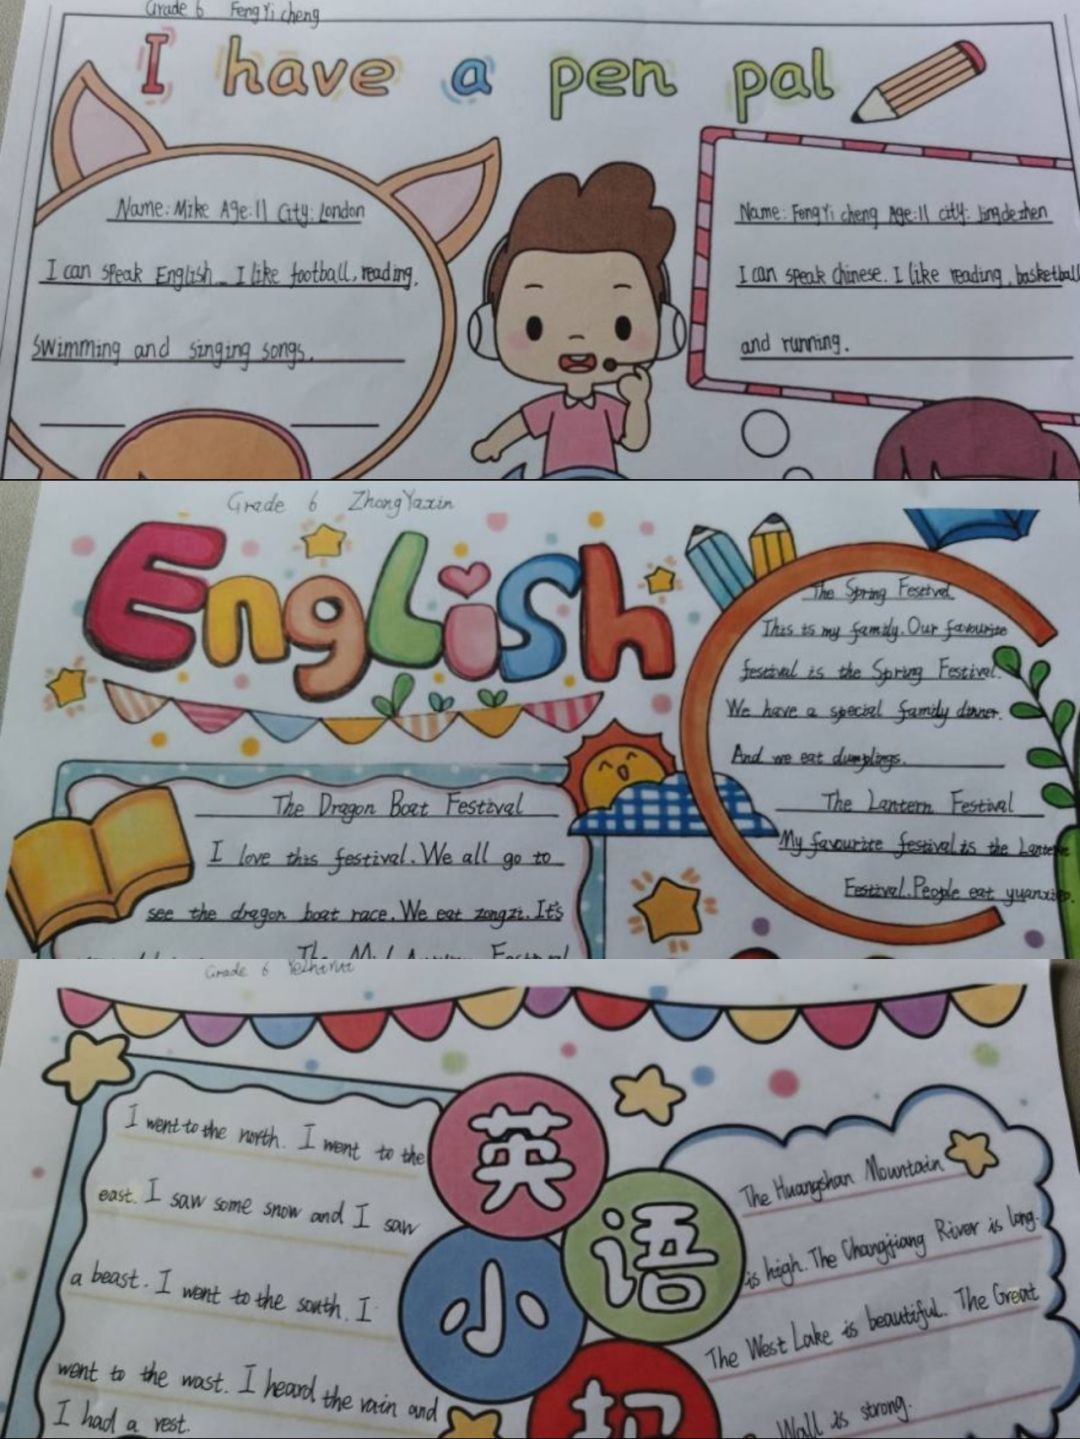 Grade 6 FengYi cheng
I have a pen pal
Name: Mike Age: 11 City: London
I can speak English. I like football, reading,
swimming and singing songs.
Name: FengYi cheng Age: 11 city: Jingdezhen
I can speak chinese. I like reading, basketball
and running.
Grade 6 ZhongYaxin
English
The Spring Festival
This is my family. Our favourite
festival is the Spring Festival.
We have a special family dinner.
And we eat dumplings.
The Lantern Festival
My favourite festival is the Lantern
Festival. People eat yuanxiao.
The Dragon Boat Festival
I love this festival. We all go to
see the dragon boat race. We eat zongzi. It's
The Mid Autumn Festival
Grade 6
英
语
小
I went to the north. I went to the
east. I saw some snow and I saw
a beast. I went to the south. I
went to the wast. I heard the rain and
I had a rest.
The Huangshan Mountain
is high. The Changjiang River is long.
The West Lake is beautiful. The Great
Wall is strong.